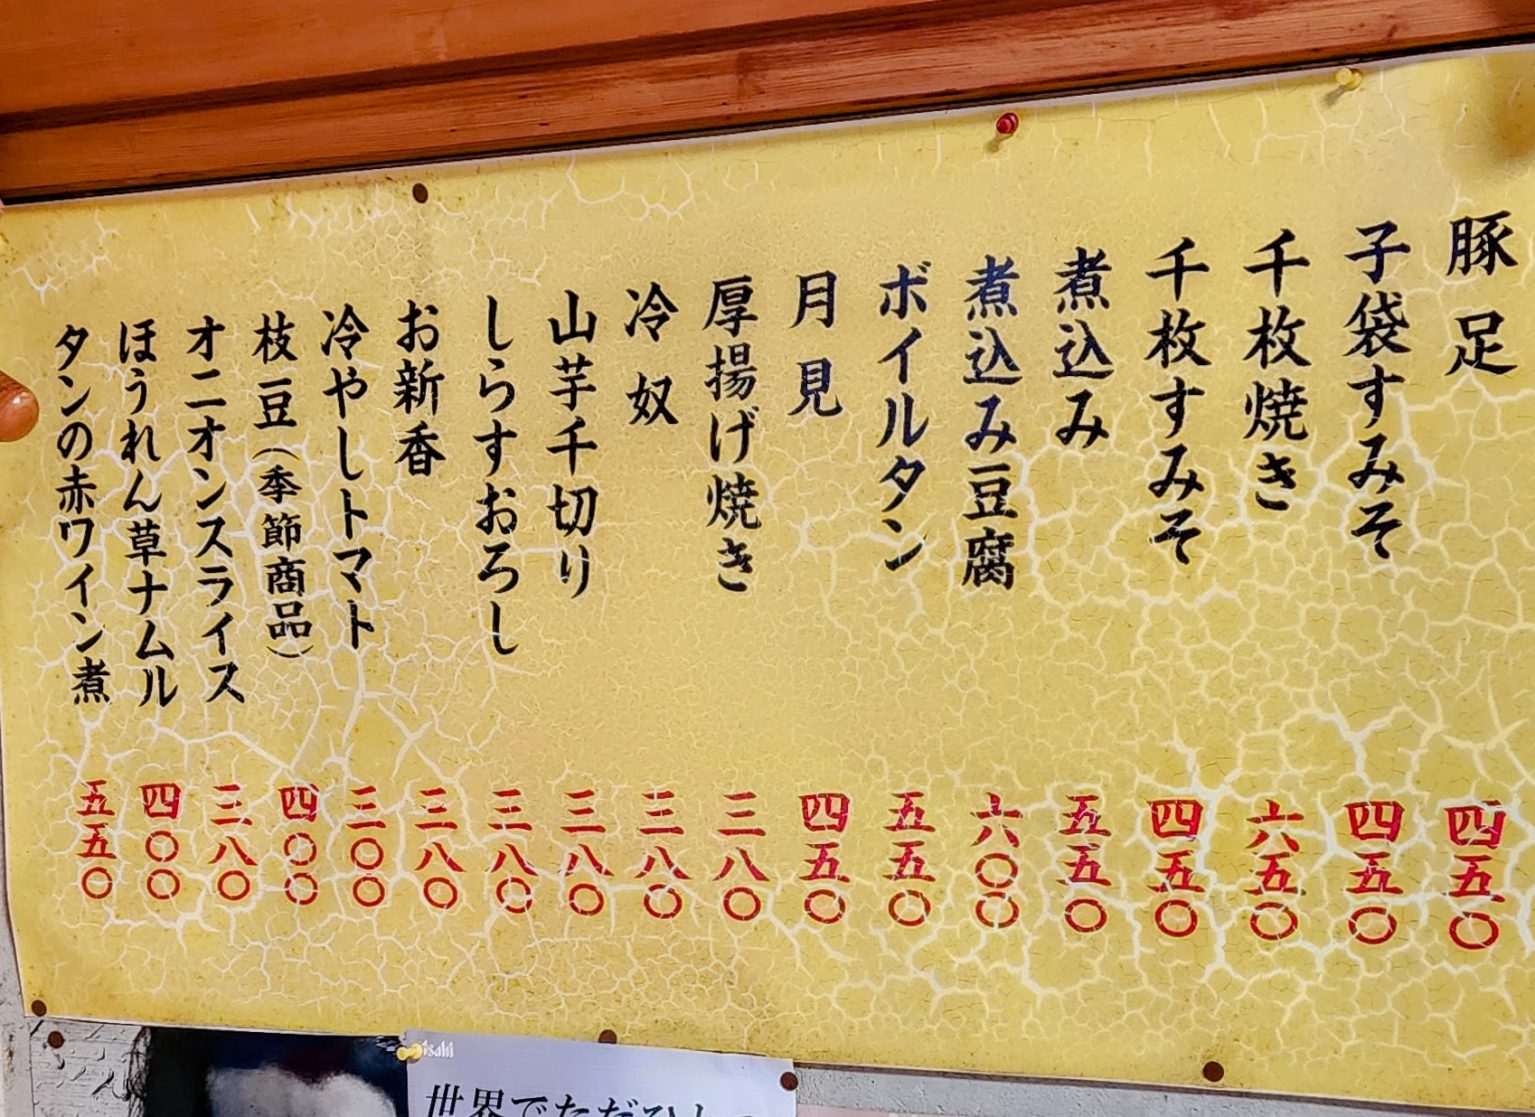 豚足 四五〇
子袋すみそ 四五〇
千枚焼き 六五〇
千枚すみそ 四五〇
煮込み 五五〇
煮込み豆腐 六〇〇
ボイルタン 五五〇
月見 四五〇
厚揚げ焼き 三八〇
冷奴 三八〇
山芋千切り 三八〇
しらすおろし 三八〇
お新香 三八〇
冷やしトマト 三〇〇
枝豆（季節商品） 四〇〇
オニオンスライス 三八〇
ほうれん草ナムル 四〇〇
タンの赤ワイン煮 五五〇
Asahi
世界でただひ